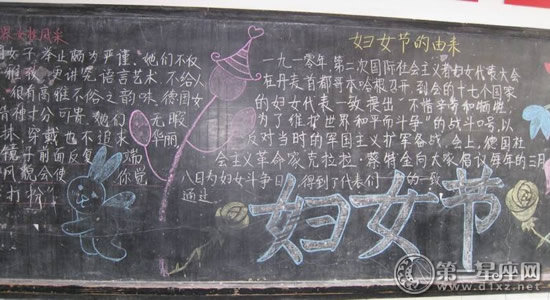 女性风采
国女子,举止颇为严谨,她们不仅
雅致,更讲究语言艺术,不给人
很有高雅不俗之韵味,德国女
种十分可贵,她们 无瑕
抹,穿戴也不追求 华丽,
镜子前面反复 端
风貌会使 你觉
打扮”
妇女节的由来
一九一零年,第二次国际社会主义者妇女代表大会
在丹麦首都哥本哈根召开,到会的十七个国家
的妇女代表一致提出“不惜辛劳和牺牲
为了维护世界和平而斗争”的战斗口号,以
反对当时的军国主义扩军备战,会上,德国社
会主义革命家克拉拉·蔡特金向大家倡议每年的三月
八日为妇女斗争日,得到了代表们的一致
通过
妇女节
第一星座网
www.d1xz.net